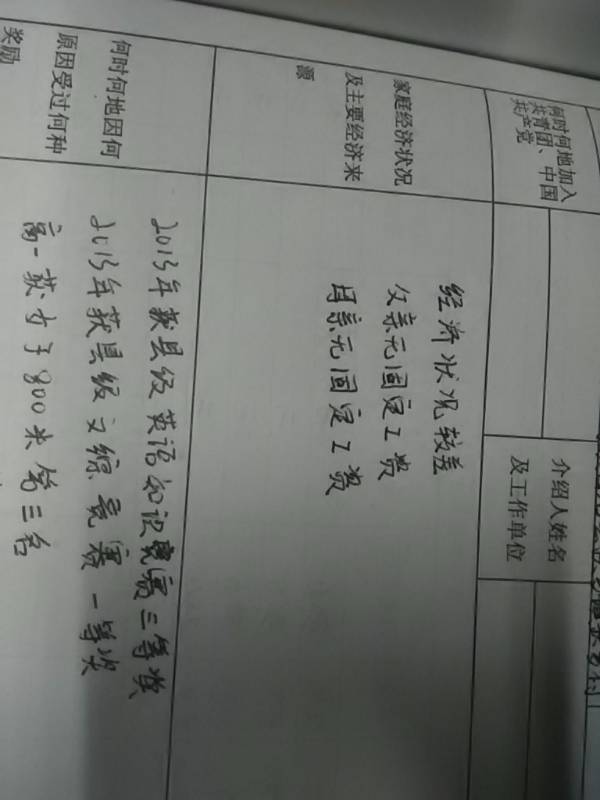 何时何地加入
共青团、中国
共产党
介绍人姓名
及工作单位
家庭经济状况
及主要经济来
源
经济状况较差
父亲无固定工资
母亲无固定工资
何时何地因何
原因受过何种
奖励
2013年获县级英语知识竞赛三等奖
2013年获县级文综竞赛一等奖
高一获女子800米第三名